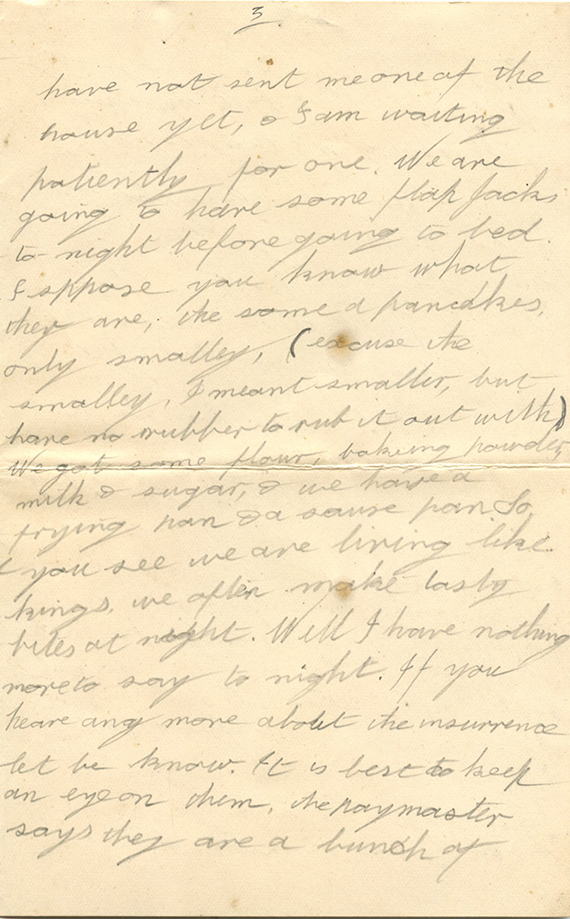 3
have not sent me one of the
house yet, & I am waiting
patiently for one. We are
going to have some flap jacks
to-night before going to bed.
I sppose you know what
they are, the same a pancakes,
only smalley, (excuse the
smalley, I meant smaller, but
have no rubber to rub it out with)
We got some flour, baking powder,
milk & sugar, & we have a
frying pan & a sause pan. So
you see we are living like
kings, we often make tasty
bites at night. Well I have nothing
more to say to night. If you
heare any more about the insurrence
let be know. It is best to keep
an eye on them, the paymaster
says they are a bunch of